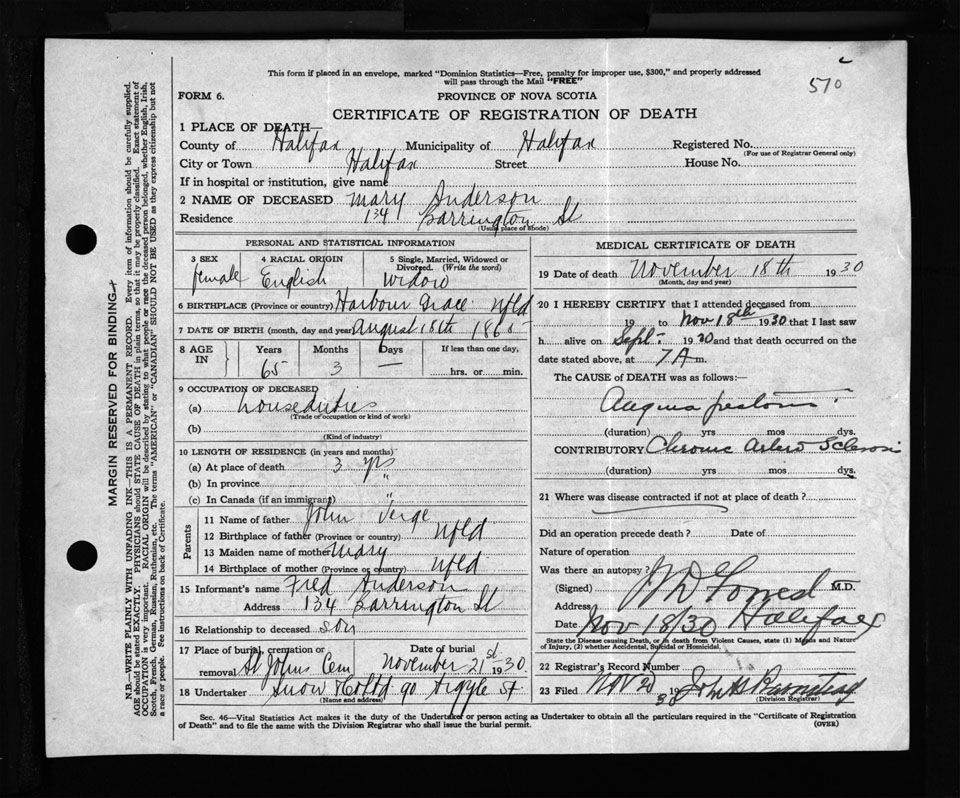 570
This form if placed in an envelope, marked "Dominion Statistics—Free, penalty for improper use, $300," and properly addressed
will pass through the Mail "FREE"
FORM 6.
PROVINCE OF NOVA SCOTIA
CERTIFICATE OF REGISTRATION OF DEATH
1 PLACE OF DEATH—
County of Halifax Municipality of Halifax Registered No.
(For use of Registrar General only)
City or Town Halifax Street House No.
If in hospital or institution, give name
2 NAME OF DECEASED Mary Anderson
Residence 134 Barrington St
(Usual place of abode)
PERSONAL AND STATISTICAL INFORMATION
3 SEX 4 RACIAL ORIGIN 5 Single, Married, Widowed or
Divorced. (Write the word)
female English Widow
6 BIRTHPLACE (Province or country) Harbour Grace Nfld
7 DATE OF BIRTH (month, day and year) August 18th 1865
8 AGE IN Years Months Days If less than one day,
65 3 — hrs. or min.
9 OCCUPATION OF DECEASED
(a) houseduties
(Trade of occupation or kind of work)
(b)
(Kind of industry)
10 LENGTH OF RESIDENCE (in years and months)
(a) At place of death 3 yrs
(b) In province "
(c) In Canada (if an immigrant) "
Parents
11 Name of father John Verge
12 Birthplace of father (Province or country) Nfld
13 Maiden name of mother Mary
14 Birthplace of mother (Province or country) Nfld
15 Informant's name Fred Anderson
Address 134 Barrington St
16 Relationship to deceased son
17 Place of burial, cremation or Date of burial
removal St Johns Cem November 21st 1930
18 Undertaker Snow & Co Ltd 90 Argyle St
(Name and address)
MEDICAL CERTIFICATE OF DEATH
19 Date of death November 18th 1930
(Month, day and year)
20 I HEREBY CERTIFY that I attended deceased from
19 to Nov 18th 1930 that I last saw
h alive on Sept. 1930 and that death occurred on the
date stated above, at 7 A m.
The CAUSE of DEATH was as follows:—
Angina pectoris
(duration) yrs mos dys.
CONTRIBUTORY Chronic Arterio Sclerosis
(duration) yrs mos dys.
21 Where was disease contracted if not at place of death?
Did an operation precede death? Date of
Nature of operation
Was there an autopsy?
(Signed) M.D.
Address Halifax
Date Nov 18/30
State the Disease causing Death, or in death from Violent Causes, state (1) Means and Nature
of Injury, (2) whether Accidental, Suicidal or Homicidal.
22 Registrar's Record Number
23 Filed Nov 20 1930 John
(Division Registrar)
Sec. 46—Vital Statistics Act makes it the duty of the Undertaker or person acting as Undertaker to obtain all the particulars required in the "Certificate of Registration
of Death" and to file the same with the Division Registrar who shall issue the burial permit.
(OVER)
MARGIN RESERVED FOR BINDING
N.B.—WRITE PLAINLY WITH UNFADING INK—THIS IS A PERMANENT RECORD. Every item of information should be carefully supplied.
AGE should be stated EXACTLY. PHYSICIANS should STATE CAUSE OF DEATH in plain terms, so that it may be properly classified. Exact statement of
OCCUPATION is very important. RACIAL ORIGIN will be described by stating to what people or race the deceased person belonged, whether English, Irish,
Scotch, French, German, Russian, Ruthenian, etc. The terms "AMERICAN" or "CANADIAN" SHOULD NOT BE USED as they express citizenship but not
a race or people. See instructions on back of Certificate.